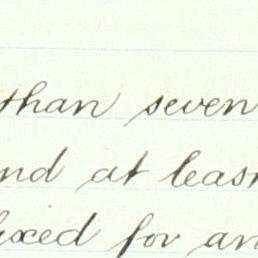 than seven
nd at least
ixed for an